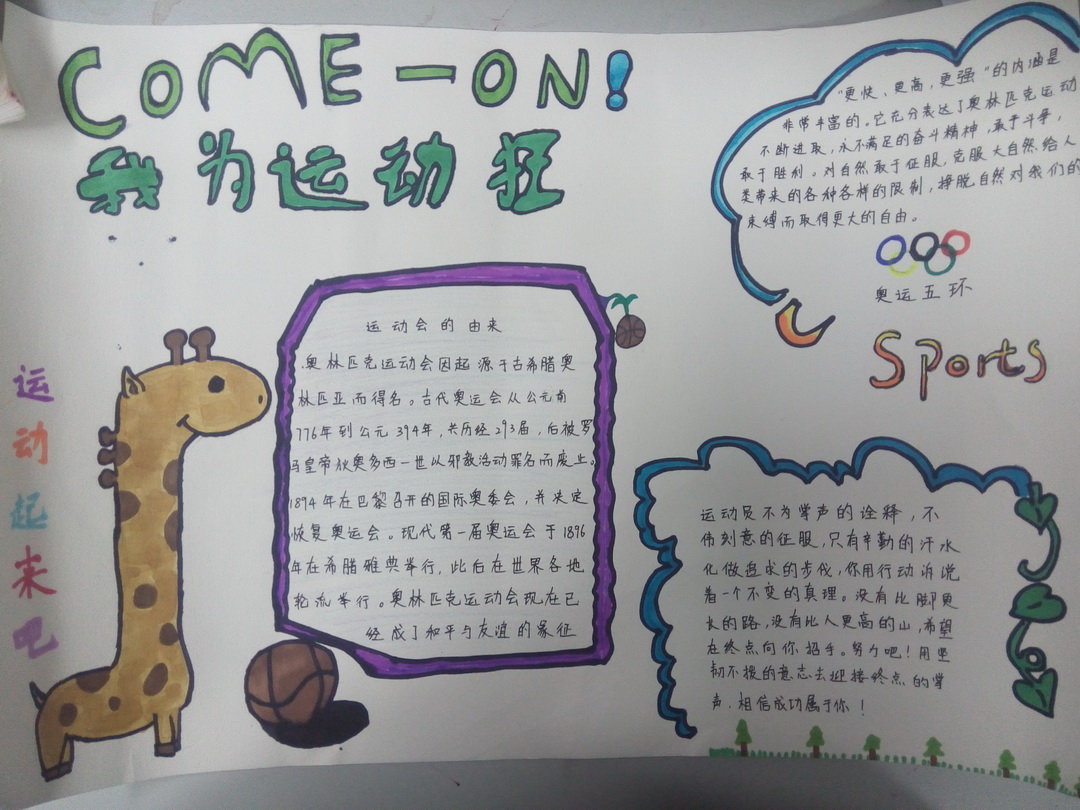 COME-ON!
我为运动狂
"更快、更高、更强"的内涵是
非常丰富的。它充分表达了奥林匹克运动
不断进取,永不满足的奋斗精神,敢于斗争,
敢于胜利。对自然敢于征服,克服大自然给人
类带来的各种各样的限制,挣脱自然对我们的
束缚而取得更大的自由。
奥运五环
Sports
运动会的由来
奥林匹克运动会因起源于古希腊奥
林匹亚而得名。古代奥运会从公元前
776年到公元394年,共历经293届,后被罗
马皇帝狄奥多西一世以邪教活动罪名而废止。
1894年在巴黎召开的国际奥委会,并决定
恢复奥运会。现代第一届奥运会于1896
年在希腊雅典举行,此后在世界各地
轮流举行。奥林匹克运动会现在已
经成了和平与友谊的象征
运动起来吧
运动员不为掌声的诠释,不
伟刻意的征服,只有辛勤的汗水
化做追求的步伐,你用行动诉说
着一个不变的真理。没有比脚更
长的路,没有比人更高的山,希望
在终点向你招手。努力吧!用坚
韧不拔的意志去迎接终点的掌
声,相信成功属于你!